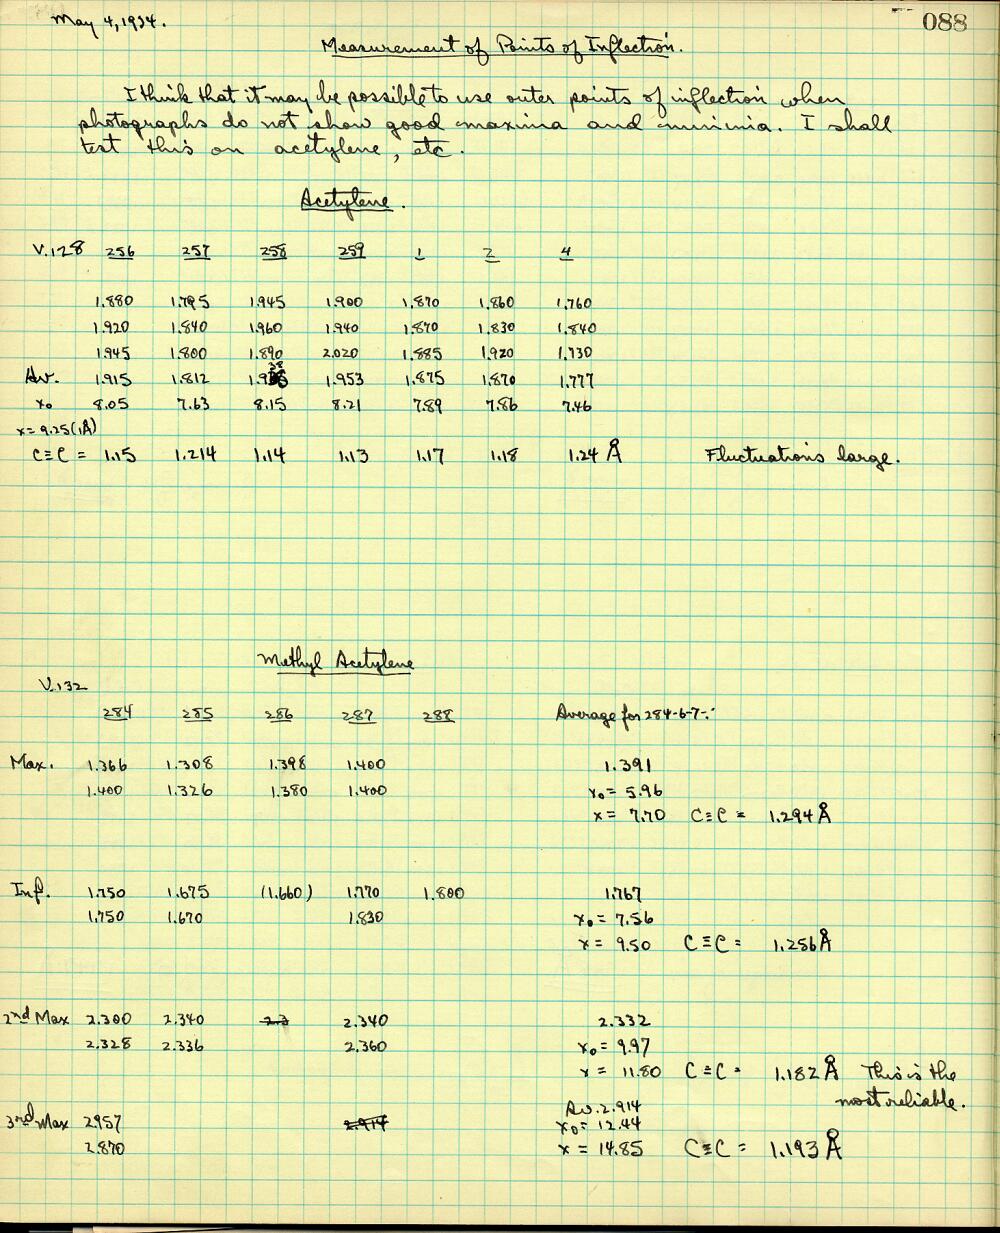 May 4, 1934.
088
Measurement of Points of Inflection.
I think that it may be possible to use outer points of inflection when
photographs do not show good maxima and minima. I shall
test this on acetylene, etc.
Acetylene.
V.128 256 257 258 259 1 2 4
1.880 1.795 1.945 1.900 1.870 1.860 1.760
1.920 1.840 1.960 1.940 1.870 1.830 1.840
1.945 1.800 1.890 2.020 1.885 1.920 1.730
Av. 1.915 1.812 1.938 1.953 1.875 1.870 1.777
x₀ 8.05 7.63 8.15 8.21 7.89 7.86 7.46
x = 9.25(1Å)
C≡C = 1.15 1.214 1.14 1.13 1.17 1.18 1.24 Å Fluctuations large.
Methyl Acetylene
V.132
284 285 286 287 288 Average for 284-6-7-:
Max. 1.366 1.308 1.398 1.400 1.391
1.400 1.326 1.380 1.400 x₀ = 5.96
x = 7.70 C≡C = 1.294 Å
Inf. 1.750 1.675 (1.660) 1.770 1.800 1.767
1.750 1.670 1.830 x₀ = 7.56
x = 9.50 C≡C = 1.256 Å
2nd Max 2.300 2.340 2.3 2.340 2.332
2.328 2.336 2.360 x₀ = 9.97
x = 11.80 C≡C = 1.182 Å This is the
most reliable.
Av. 2.914
3rd Max 2.957 2.914 x₀ = 12.44
2.870 x = 14.85 C≡C = 1.193 Å